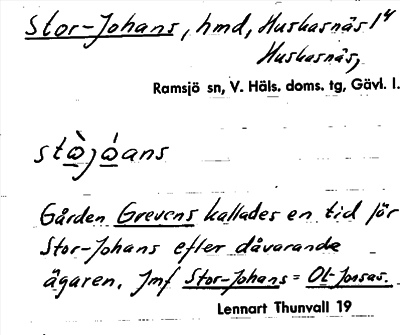 Stor-Johans, hmd, Huskasnäs 1⁴
Huskasnäs,
Ramsjö sn, V. Häls. doms. tg, Gävl. l.
stòjóans
Gården Grevens kallades en tid för
Stor-Johans efter dåvarande
ägaren. Jmf Stor-Johans = Ol-Jonsas.
Lennart Thunvall 19